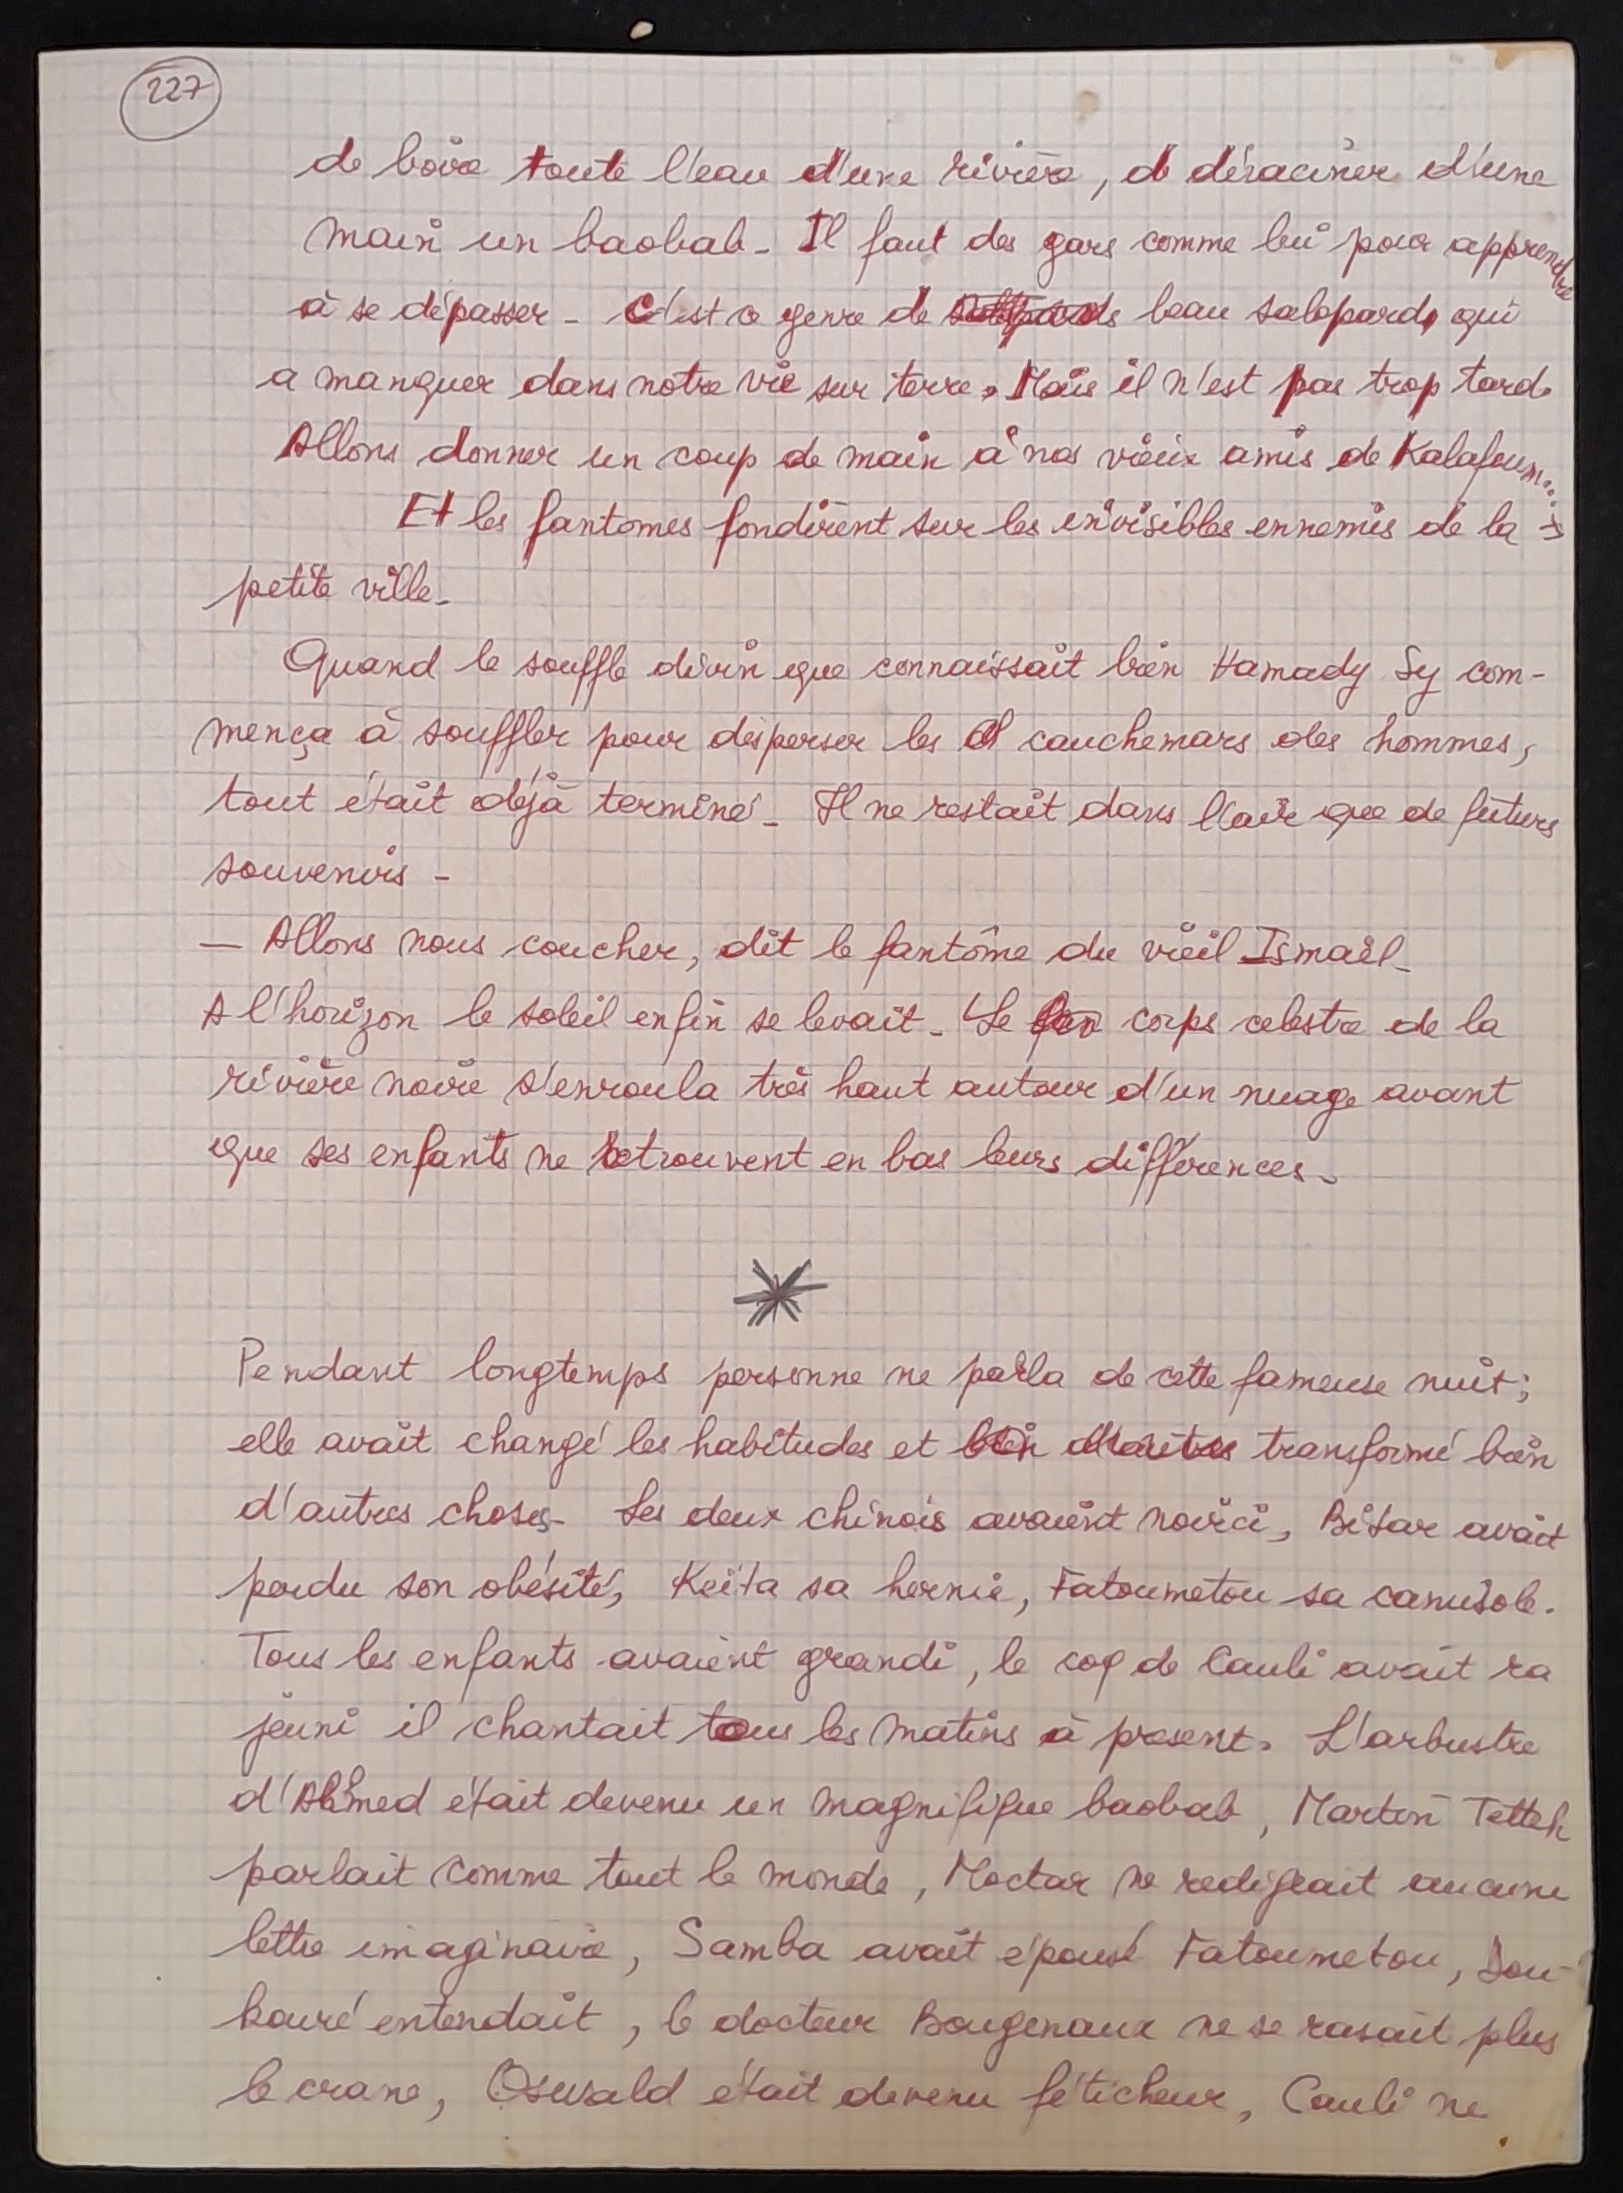 227
de boire toute l'eau d'une rivière, de déraciner d'une
main un baobab - Il faut des gars comme lui pour apprendre
à se dépasser - C'est ce genre de beau salopard, qui
a manquer dans notre vie sur terre. Mais il n'est pas trop tard.
Allons donner un coup de main à nos vieux amis de Kalafoum...
Et les fantomes fondirent sur les invisibles ennemis de la
petite ville -
Quand le souffle divin que connaissait bien Hamady Sy com-
mença à souffler pour disperser les cauchemars des hommes,
tout était déjà terminé - Il ne restait dans l'air que de futurs
souvenirs -
— Allons nous coucher, dit le fantôme du vieil Ismaël -
A l'horizon le soleil enfin se levait - Le corps celeste de la
rivière noire s'enroula très haut autour d'un nuage avant
que ses enfants ne retrouvent en bas leurs différences -
Pendant longtemps personne ne parla de cette fameuse nuit ;
elle avait changé les habitudes et transformé bien
d'autres choses - Les deux chinois avaient noirci, Bitar avait
perdu son obésité, Keïta sa hernie, Fatoumetou sa camisole.
Tous les enfants avaient grandi, le coq de Cauli avait ra
jeuni il chantait tous les matins à present. L'arbustre
d'Ahmed était devenu un magnifique baobab, Martin Tetteh
parlait comme tout le monde, Moctar ne redigeait aucune
lettre imaginaire, Samba avait épousé Fatoumetou, Dou-
kouré entendait, le docteur Bougenaux ne se rasait plus
le crane, Oswald était devenu féticheur, Cauli ne